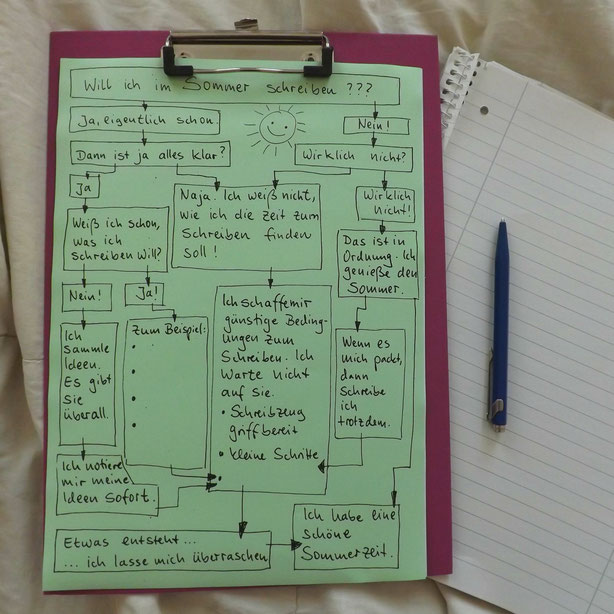 Will ich im Sommer schreiben ???
Ja, eigentlich schon.
Nein!
Dann ist ja alles klar?
Wirklich nicht?
Ja
Naja. Ich weiß nicht,
wie ich die Zeit zum
Schreiben finden
soll!
Wirklich
nicht!
Weiß ich schon,
was ich
schreiben will?
Das ist in
Ordnung. Ich
genieße den
Sommer.
Nein!
Ja!
Ich
sammle
Ideen.
Es gibt
sie
überall.
Zum Beispiel:
•
•
•
•
Ich schaffe mir
günstige Beding-
ungen zum
Schreiben. Ich
warte nicht
auf sie.
• Schreibzeug
griffbereit
• kleine Schritte
•
Wenn es
mich packt,
dann
schreibe
ich
trotzdem.
Ich notiere
mir meine
Ideen sofort.
Etwas entsteht...
... ich lasse mich überraschen
Ich habe eine
schöne
Sommerzeit.